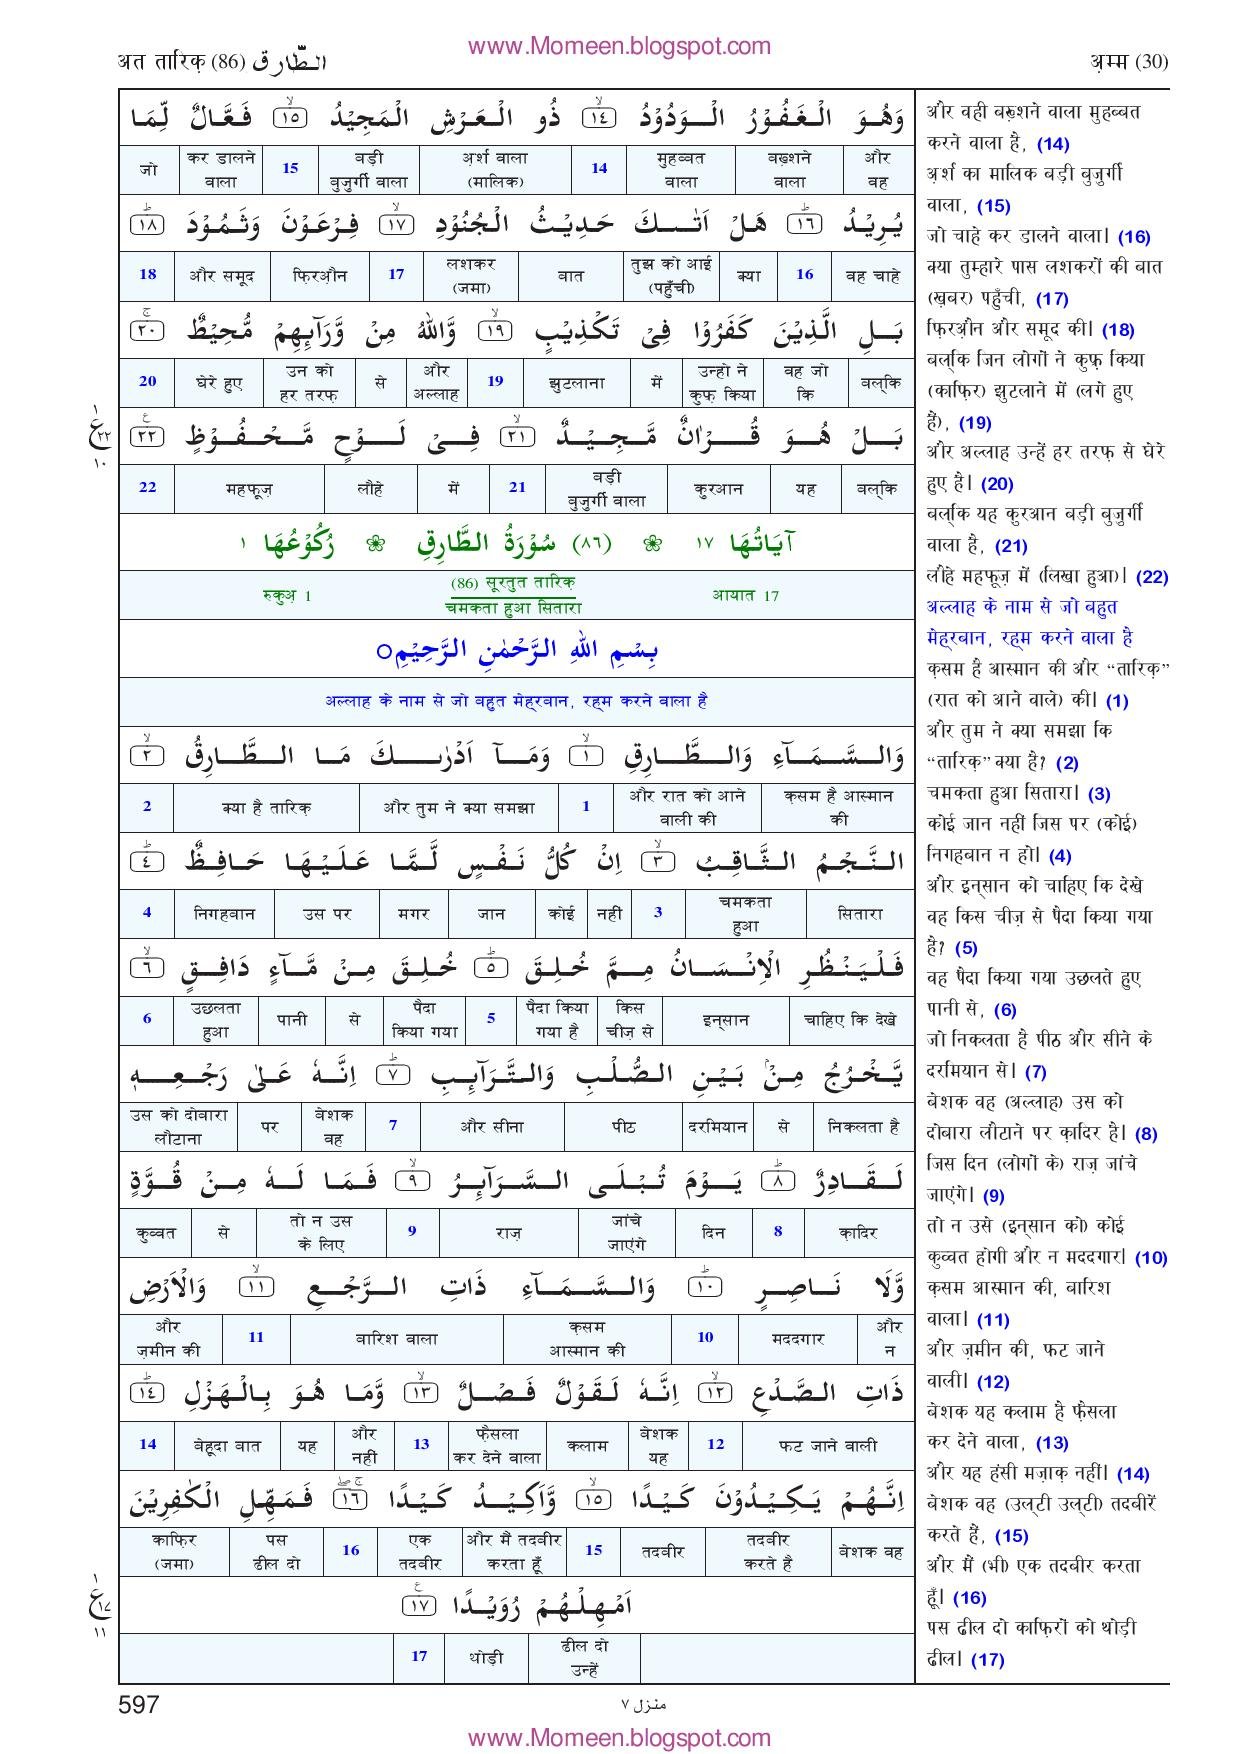 www.Momeen.blogspot.com
अत तारिक़ (86) الطَّارِق
अ़म्म (30)
وَهُوَ الْغَفُوْرُ الْوَدُوْدُ ۙ﴿١٤﴾ ذُو الْعَرْشِ الْمَجِيْدُ ۙ﴿١٥﴾ فَعَّالٌ لِّمَا
और वह | बख़्शने वाला | मुहब्बत वाला | 14 | अ़र्श वाला (मालिक) | बड़ी बुजुर्गी वाला | 15 | कर डालने वाला | जो
يُرِيْدُ ؕ﴿١٦﴾ هَلْ اَتٰىكَ حَدِيْثُ الْجُنُوْدِ ۙ﴿١٧﴾ فِرْعَوْنَ وَثَمُوْدَ ؕ﴿١٨﴾
वह चाहे | 16 | क्या | तुझ को आई (पहुँची) | बात | लशकर (जमा) | 17 | फ़िरऔ़न | और समूद | 18
بَلِ الَّذِيْنَ كَفَرُوْا فِىْ تَكْذِيْبٍ ۙ﴿١٩﴾ وَّاللّٰهُ مِنْ وَّرَآئِهِمْ مُّحِيْطٌ ۚ﴿٢٠﴾
बल्कि | वह जो कि | उन्हो ने कुफ़ किया | में | झुटलाना | 19 | और अल्लाह | से | उन को हर तरफ़ | घेरे हुए | 20
بَلْ هُوَ قُرْاٰنٌ مَّجِيْدٌ ۙ﴿٢١﴾ فِىْ لَوْحٍ مَّحْفُوْظٍ ۧ﴿٢٢﴾
١ ع ٢٢ ١٠
बल्कि | यह | कुरआन | बड़ी बुजुर्गी वाला | 21 | में | लौहे | महफ़ूज़ | 22
آيَاتُهَا ١٧ ❀ (٨٦) سُوْرَةُ الطَّارِقِ ❀ رُكُوْعُهَا ١
आयात 17 | (86) सूरतुत तारिक़ | रुकुअ़ 1
चमकता हुआ सितारा
بِسْمِ اللّٰهِ الرَّحْمٰنِ الرَّحِيْمِ○
अल्लाह के नाम से जो बहुत मेह्रबान, रह्म करने वाला है
وَالسَّمَآءِ وَالطَّارِقِ ۙ﴿١﴾ وَمَآ اَدْرٰىكَ مَا الطَّارِقُ ۙ﴿٢﴾
क़सम है आस्मान की | और रात को आने वाली की | 1 | और तुम ने क्या समझा | क्या है तारिक़ | 2
النَّجْمُ الثَّاقِبُ ۙ﴿٣﴾ اِنْ كُلُّ نَفْسٍ لَّمَّا عَلَيْهَا حَافِظٌ ؕ﴿٤﴾
सितारा | चमकता हुआ | 3 | नहीं | कोई | जान | मगर | उस पर | निगहबान | 4
فَلْيَنْظُرِ الْاِنْسَانُ مِمَّ خُلِقَ ؕ﴿٥﴾ خُلِقَ مِنْ مَّآءٍ دَافِقٍ ۙ﴿٦﴾
चाहिए कि देखे | इन्सान | किस चीज़ से | पैदा किया गया है | 5 | पैदा किया गया | से | पानी | उछलता हुआ | 6
يَّخْرُجُ مِنْۢ بَيْنِ الصُّلْبِ وَالتَّرَآئِبِ ؕ﴿٧﴾ اِنَّهٗ عَلٰى رَجْعِهٖ
निकलता है | से | दरमियान | पीठ | और सीना | 7 | बेशक वह | पर | उस को दोबारा लौटाना
لَقَادِرٌ ؕ﴿٨﴾ يَوْمَ تُبْلَى السَّرَآئِرُ ۙ﴿٩﴾ فَمَا لَهٗ مِنْ قُوَّةٍ
क़ादिर | 8 | दिन | जांचे जाएंगे | राज़ | 9 | तो न उस के लिए | से | कुव्वत
وَّلَا نَاصِرٍ ؕ﴿١٠﴾ وَالسَّمَآءِ ذَاتِ الرَّجْعِ ۙ﴿١١﴾ وَالْاَرْضِ
और न | मददगार | 10 | क़सम आस्मान की | बारिश वाला | 11 | और ज़मीन की
ذَاتِ الصَّدْعِ ۙ﴿١٢﴾ اِنَّهٗ لَقَوْلٌ فَصْلٌ ۙ﴿١٣﴾ وَّمَا هُوَ بِالْهَزْلِ ؕ﴿١٤﴾
फट जाने वाली | 12 | बेशक यह | कलाम | फ़ैसला कर देने वाला | 13 | और नहीं | यह | बेहूदा बात | 14
اِنَّهُمْ يَكِيْدُوْنَ كَيْدًا ۙ﴿١٥﴾ وَّاَكِيْدُ كَيْدًا ۚۖ﴿١٦﴾ فَمَهِّلِ الْكٰفِرِيْنَ
बेशक वह | तदबीर करते है | तदबीर | 15 | और मैं तदबीर करता हूँ | एक तदबीर | 16 | पस ढील दो | काफ़िर (जमा)
اَمْهِلْهُمْ رُوَيْدًا ۧ﴿١٧﴾
١ ع ١٧ ١١
ढील दो उन्हें | थोड़ी | 17
और वही बख़्शने वाला मुहब्बत
करने वाला है, (14)
अ़र्श का मालिक बड़ी बुजुर्गी
वाला, (15)
जो चाहे कर डालने वाला। (16)
क्या तुम्हारे पास लशकरों की बात
(ख़बर) पहुँची, (17)
फ़िरऔ़न और समूद की। (18)
बल्कि जिन लोगों ने कुफ़ किया
(काफ़िर) झुटलाने में (लगे हुए
हैं), (19)
और अल्लाह उन्हें हर तरफ़ से घेरे
हुए है। (20)
बल्कि यह कुरआन बड़ी बुजुर्गी
वाला है, (21)
लौहे महफ़ूज़ में (लिखा हुआ)। (22)
अल्लाह के नाम से जो बहुत
मेह्रबान, रह्म करने वाला है
क़सम है आस्मान की और “तारिक़”
(रात को आने वाले) की। (1)
और तुम ने क्या समझा कि
“तारिक़” क्या है? (2)
चमकता हुआ सितारा। (3)
कोई जान नहीं जिस पर (कोई)
निगहबान न हो। (4)
और इन्सान को चाहिए कि देखे
वह किस चीज़ से पैदा किया गया
है? (5)
वह पैदा किया गया उछलते हुए
पानी से, (6)
जो निकलता है पीठ और सीने के
दरमियान से। (7)
बेशक वह (अल्लाह) उस को
दोबारा लौटाने पर क़ादिर है। (8)
जिस दिन (लोगों के) राज़ जांचे
जाएंगे। (9)
तो न उसे (इन्सान को) कोई
कुव्वत होगी और न मददगार। (10)
क़सम आस्मान की, बारिश
वाला। (11)
और ज़मीन की, फट जाने
वाली। (12)
बेशक यह कलाम है फ़ैसला
कर देने वाला, (13)
और यह हंसी मज़ाक़ नहीं। (14)
बेशक वह (उल्टी उल्टी) तदबीरें
करते हैं, (15)
और मैं (भी) एक तदबीर करता
हूँ। (16)
पस ढील दो काफ़िरों को थोड़ी
ढील। (17)
597
منزل ٧
www.Momeen.blogspot.com